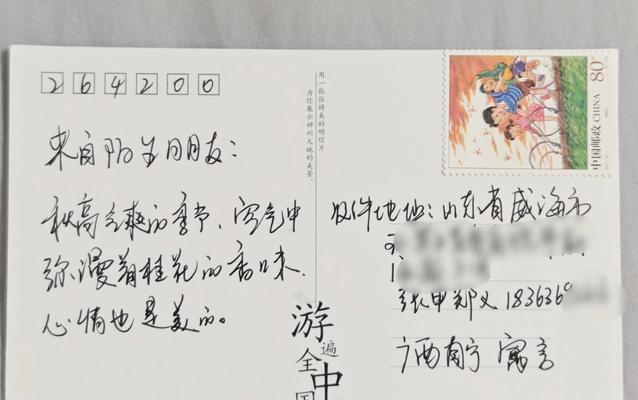 264200
来自陌生的朋友：
秋高气爽的季节、空气中
弥漫着桂花的香味.
心情也是美的。
用一张张精美的明信片
为你展示神州大地的美景。
游遍
全中
国
80分
中国邮政 CHINA
收件地址：山东省威海市
183636
广西南宁 寓言